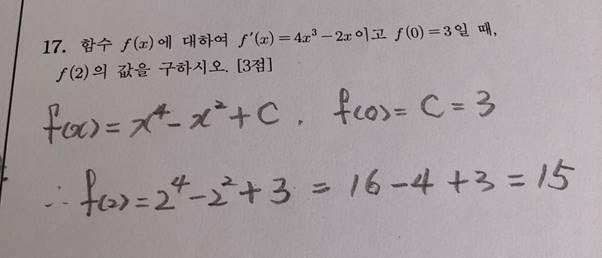 17. 함수 f(x)에 대하여 f′(x)=4x³−2x이고 f(0)=3일 때,
f(2)의 값을 구하시오. [3점]
f(x)=x⁴−x²+C, f(0)=C=3
∴f(2)=2⁴−2²+3=16−4+3=15